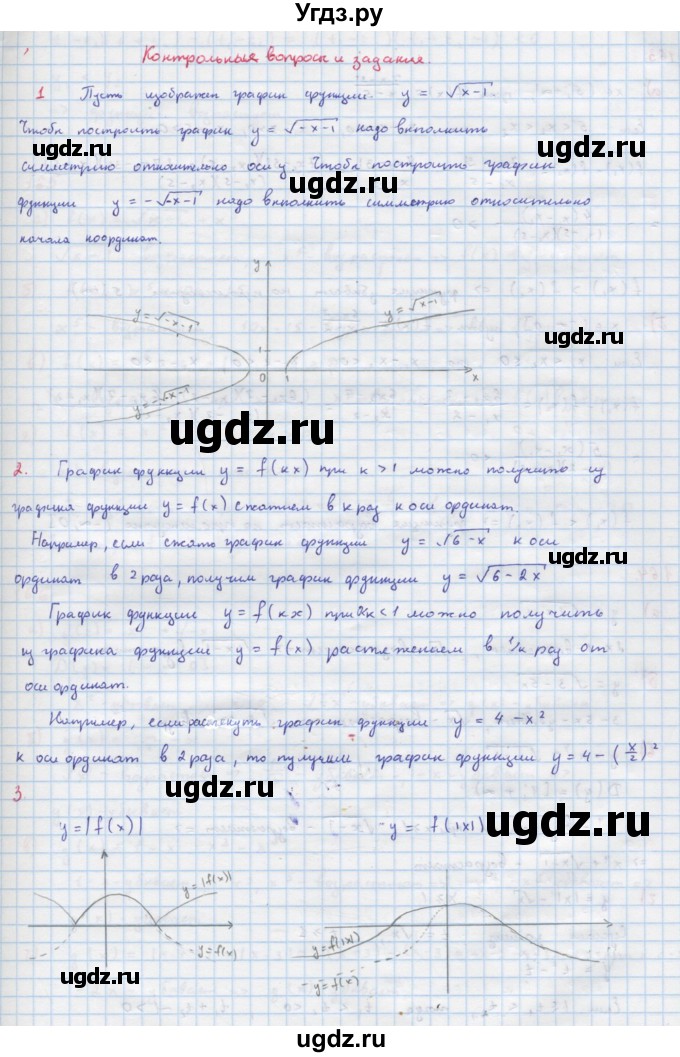 Угдз.ру
Контрольные вопросы и задания.
1 Пусть изображен график функции y = √x-1.
Чтобы построить график y = √-x-1 надо выполнить
симметрию относительно оси y. Чтобы построить график
функции y = -√-x-1 надо выполнить симметрию относительно
начала координат.
y
y = √-x-1
y = √x-1
1
0 1 x
y = -√-x-1
2. График функции y = f(kx) при k>1 можно получить из
графика функции y = f(x) сжатием в k раз к оси ординат.
Например, если сжать график функции y = √6-x к оси
ординат в 2 раза, получим график функции y = √6-2x
График функции y = f(kx) при k<1 можно получить
из графика функции y = f(x) растяжением в 1/k раз от
оси ординат.
Например, если растянуть график функции y = 4 - x²
к оси ординат в 2 раза, то получим график функции y = 4 - (x/2)²
3.
y = |f(x)| y = f(|x|)
y = |f(x)|
y = f(x)
y = f(|x|)
y = f(x)
ugdz.ru
ugdz.ru
ugdz.ru
ugdz.ru
ugdz.ru
ugdz.ru
ugdz.ru
ugdz.ru
ugdz.ru
ugdz.ru
ugdz.ru
ugdz.ru
ugdz.ru